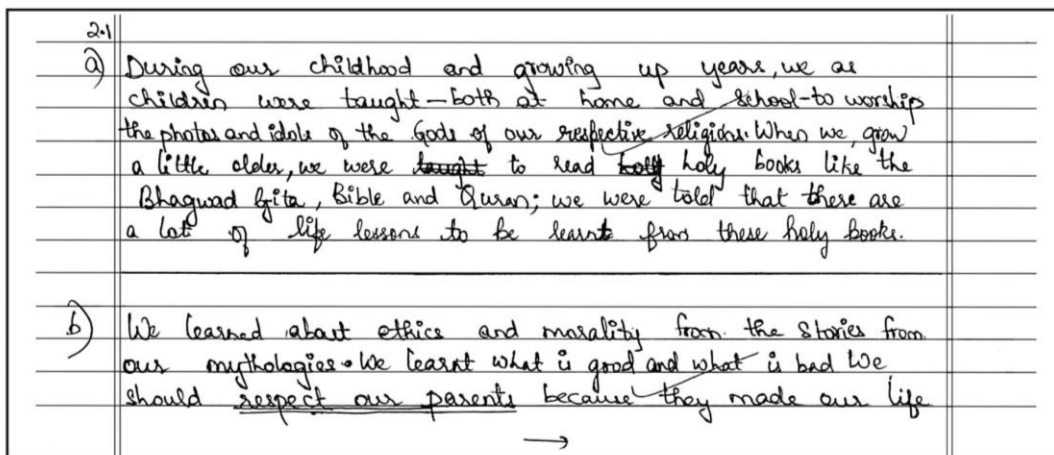 2.1
a) During our childhood and growing up years, we as
children were taught - both at home and school - to worship
the photos and idols of the Gods of our respective religions. When we grow
a little older, we were taught to read holy holy books like the
Bhagwad Gita, Bible and Quran; we were told that there are
a lot of life lessons to be learnt from these holy books.
b) We learned about ethics and morality from the stories from
our mythologies. We learnt what is good and what is bad We
should respect our parents because they made our life
→